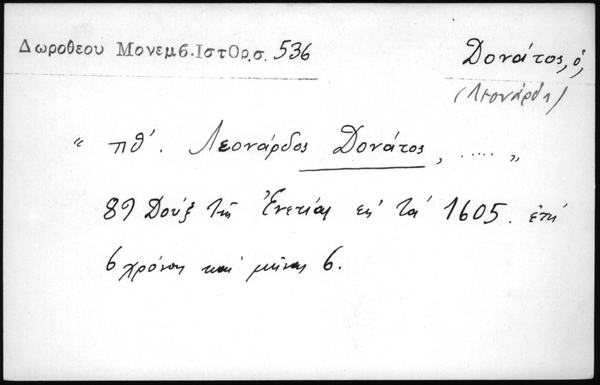 Δωροθεου Μονεμβ.ΙστΟρ.σ. 536
Δονάτος, ὁ,
(Λεονάρδη)
“ πθ'. Λεονάρδος Δονάτος, ..... „
89 Δούξ τῆς Ἐνετίας εἰς τὰ 1605. ἐπὶ
6 χρόνους καὶ μῆνας 6.